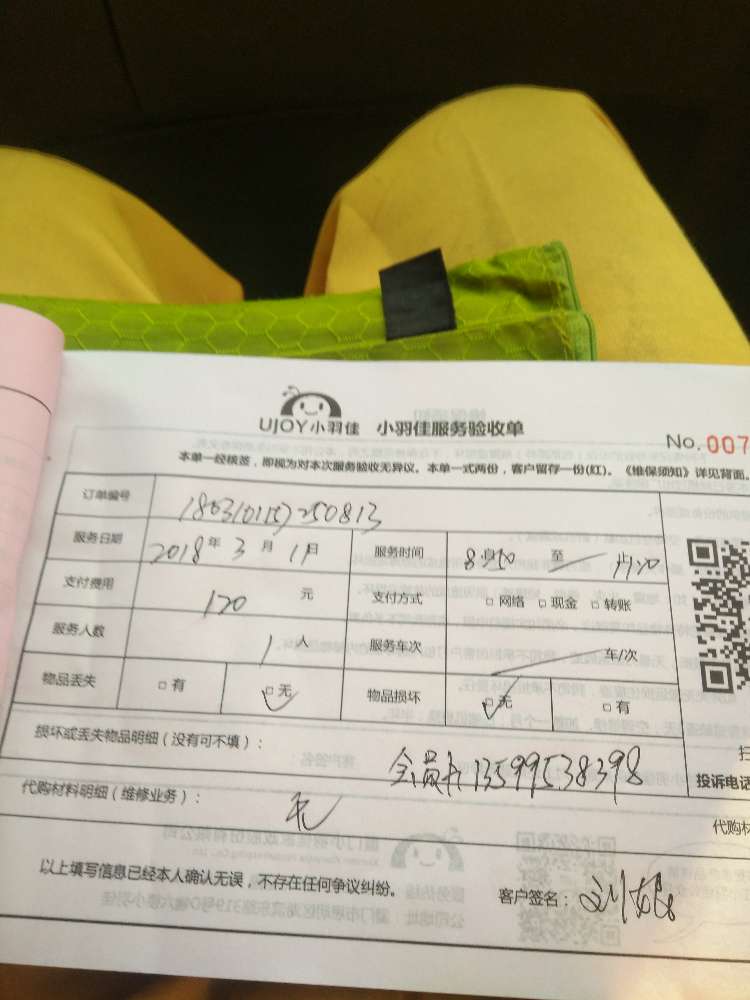 UJOY小羽佳 小羽佳服务验收单
No. 007
本单一经核签，即视为对本次服务验收无异议。本单一式两份，客户留存一份(红)。《维保须知》详见背面。
订单编号
服务日期 2018年3月1日 服务时间 8:50 至
支付费用 120 元 支付方式 □ 网络 □ 现金 □ 转账
服务人数 1人 服务车次 车/次
物品丢失 □ 有 □ 无 物品损坏 □ 无 □ 有
损坏或丢失物品明细（没有可不填）：
会员卡 13599538398
投诉电话
代购材料明细（维修业务）： 无
代购材
以上填写信息已经本人确认无误，不存在任何争议纠纷。
客户签名：